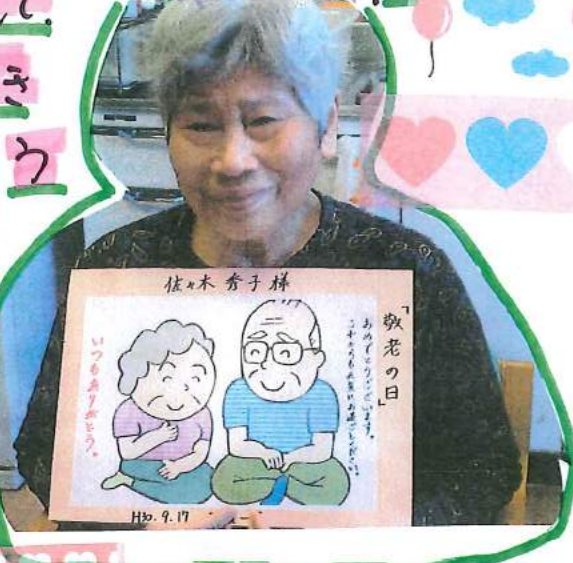 て.
き
う
佐々木 秀子 様
「敬老の日」
おめでとうございます。
これからも元気にお過ごしください。
いつもありがとう。
H30.9.17